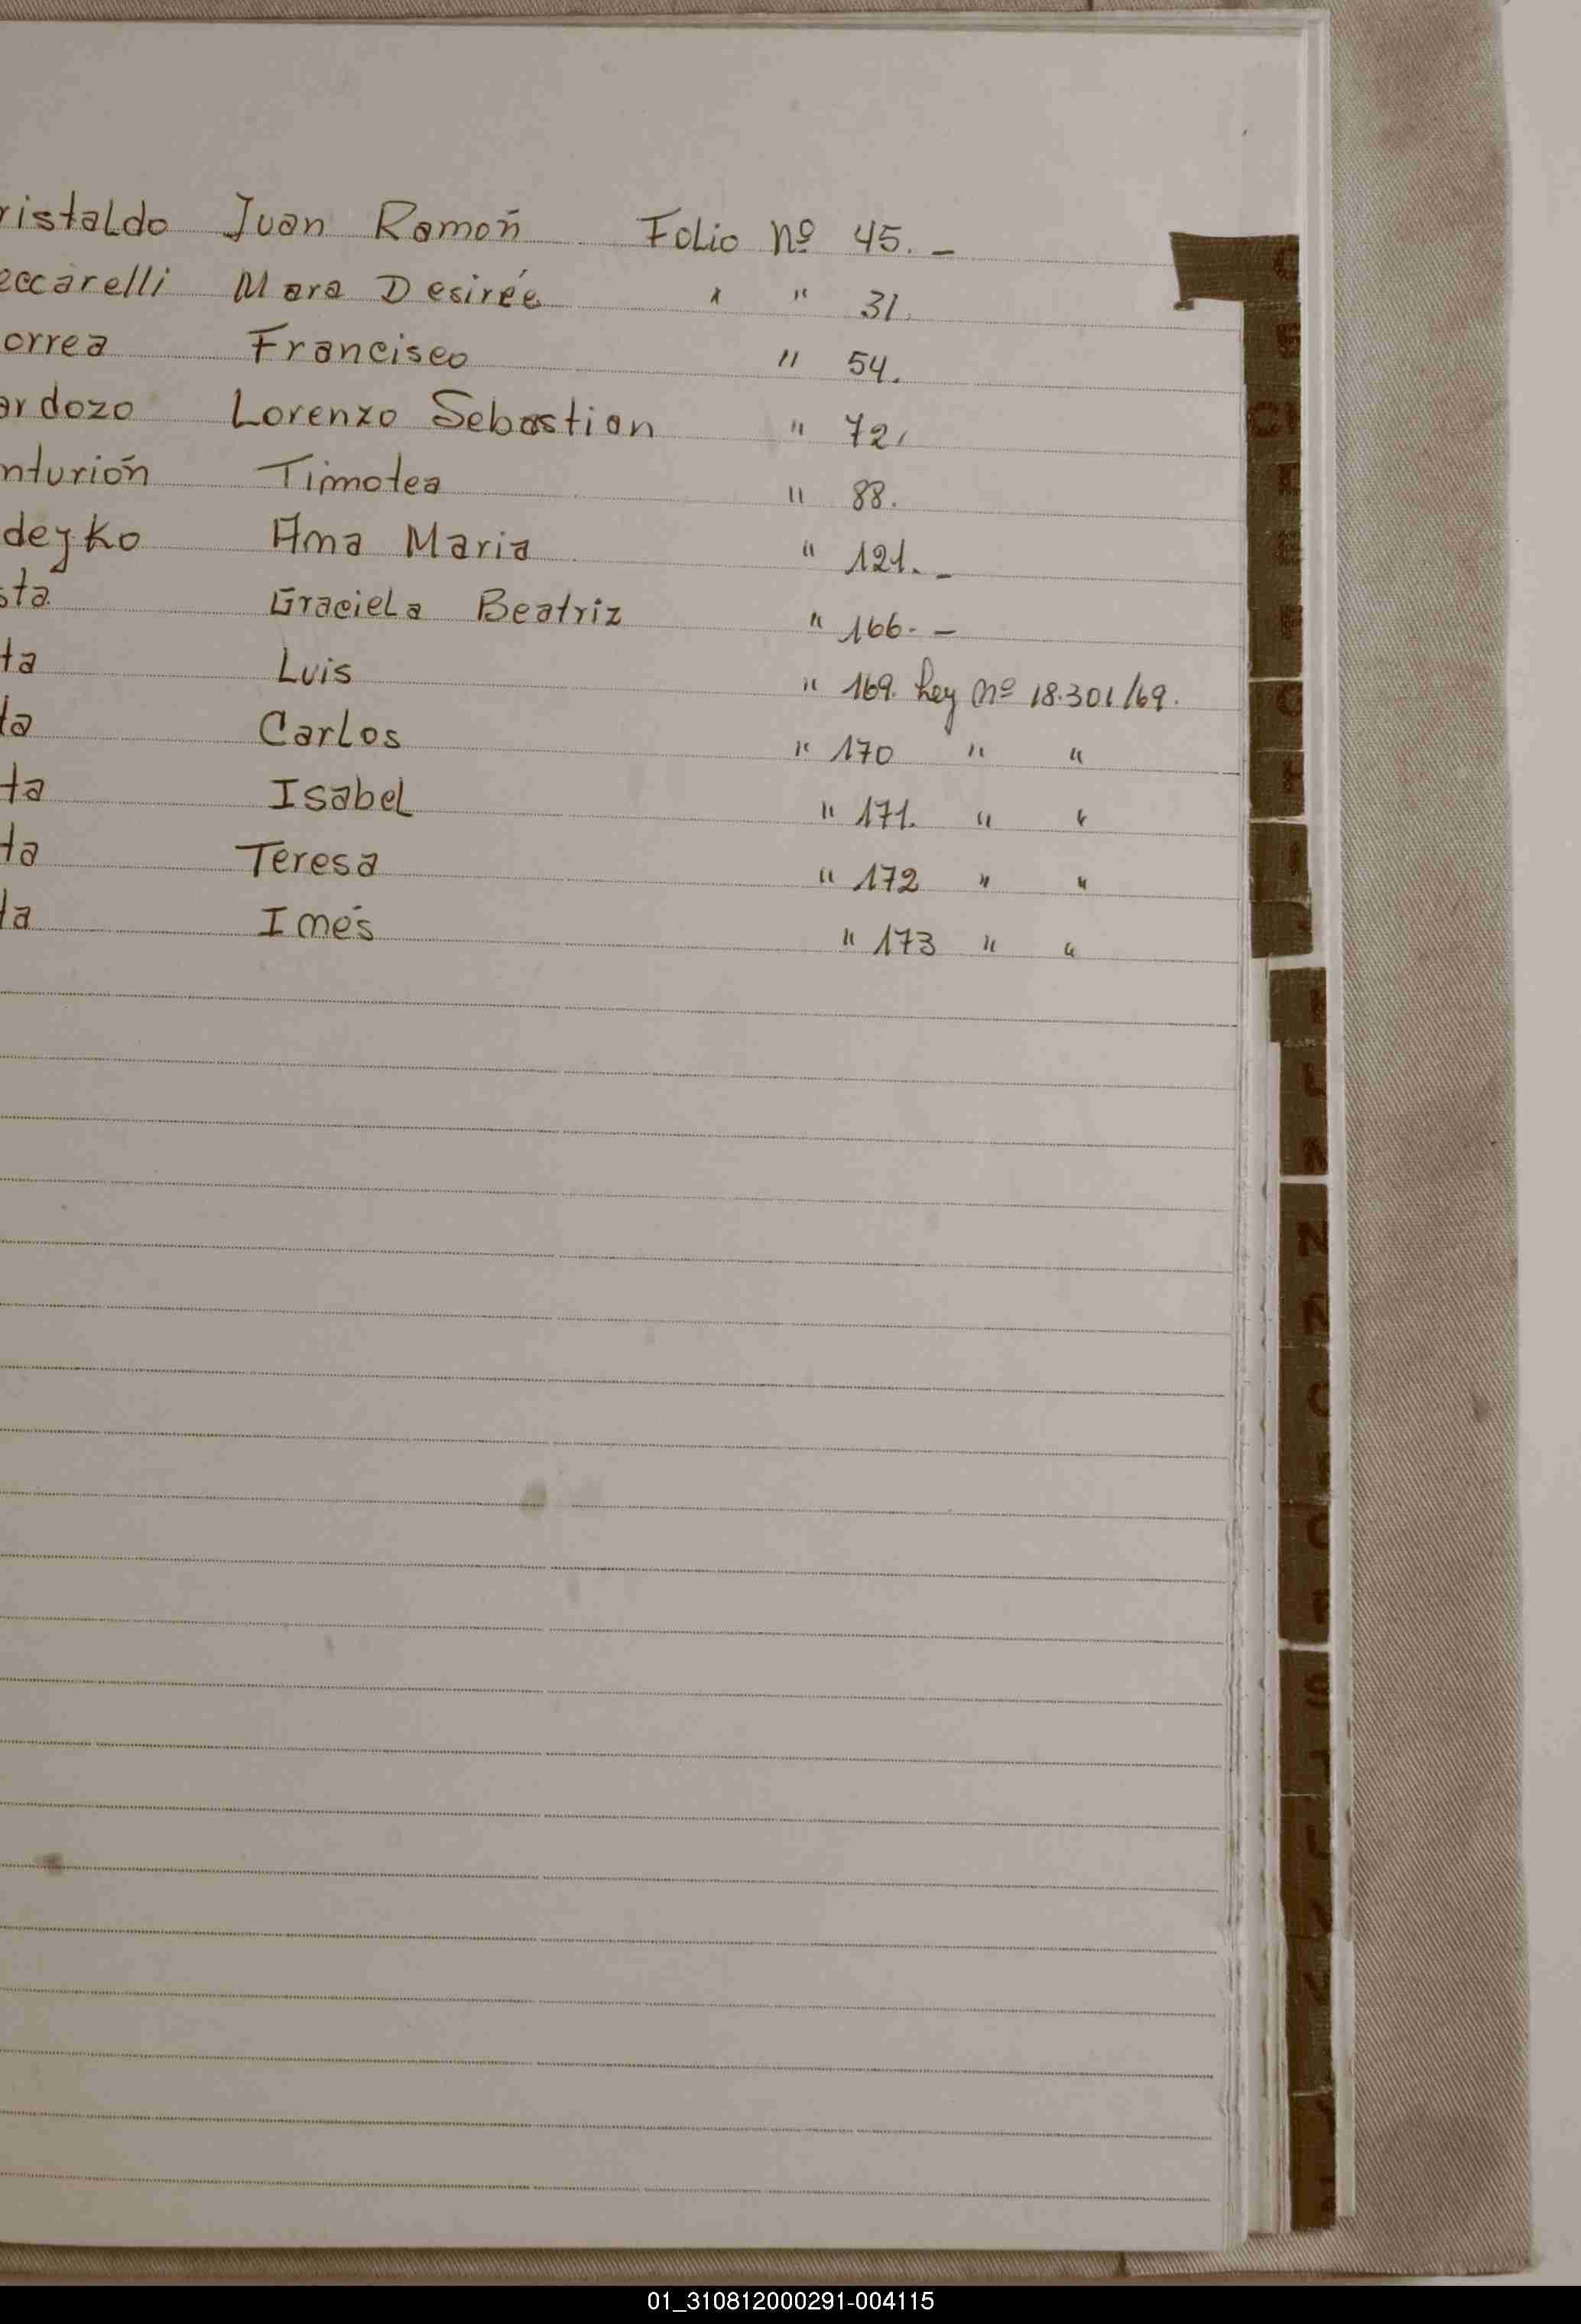 ristaldo Juan Ramón Folio Nº 45.-
eccarelli Mara Desirée " " 31.
orrea Francisco " 54.
ardozo Lorenzo Sebastian " 72.
nturión Timotea " 88.
deyko Ana Maria " 121.-
sta Graciela Beatriz " 166.-
ta Luis " 169. Ley Nº 18.301/69.
ta Carlos " 170 " "
ta Isabel " 171. " "
ta Teresa " 172 " "
ta Inés " 173 " "
01_310812000291-004115